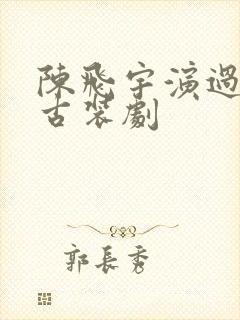 陳飛宇演過
古裝劇
郭長秀